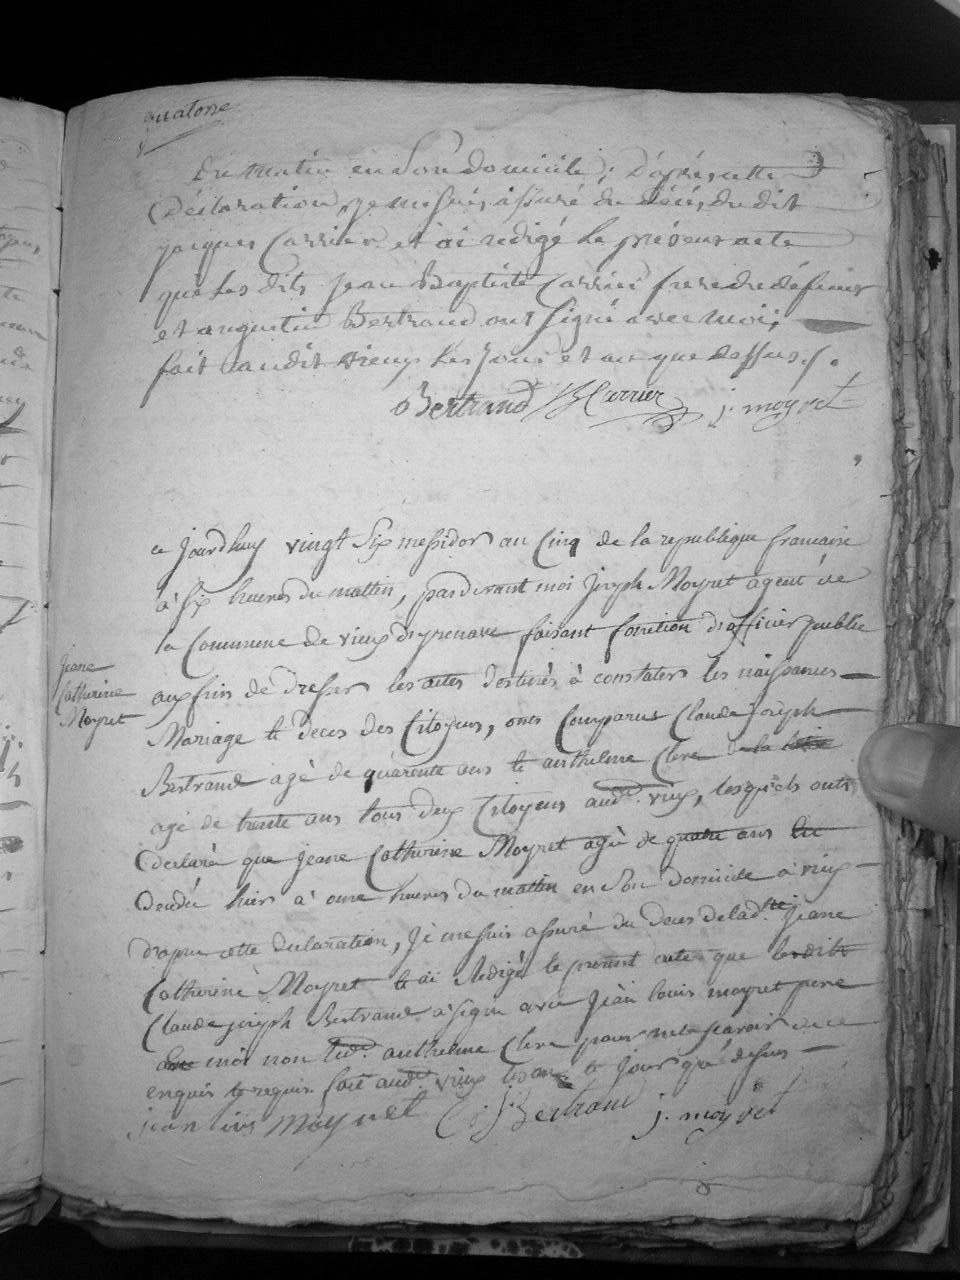 quatorze
du matin en son domicile; D'après cette
Déclaration, je me suis assuré du décès du dit
jacques Carrier et ai redigé le présent acte
que les dits Jean Baptiste Carrier frere du défunt
et augustin Bertrand ont signé avec moi;
fait audit vieux les jour et an que dessus ./.
Bertrand JBCarrier j. moyret
ce jourdhuy vingt six messidor an Cinq de la republique francaise
à six heures du mattin, pardevant moi Joseph Moyret agent de
la Commune de vieux d'yzenave faisant fonction d'officier public
aux fins de dresser les actes destinés à constater les naissances
Jeane
Catherine
Moyret
Mariage et deces des Citoyens, onts Comparus Claude joseph
Bertrand agé de quarente ans et anthelme Clerc de la
agé de trente ans tous deux Citoyens aud.t vieux, lesquels onts
declaré que jeane Catherine Moyret agée de quatre ans
decedée hier à onze heures du mattin en son domicile à vieux
d'apres cette declaration, je me suis assuré du deces de lad.tte jeane
Catherine Moyret et ai Redigé le present acte que ledit
Claude joseph Bertrand à signe avec jean louis moyret pere
avec moi non led.t anthelme Clerc pour ne le scavoir de ce
enquis et requis fait aud.t vieux les an et jour que dessus
jean louis moyret C j Bertrand j. moyret